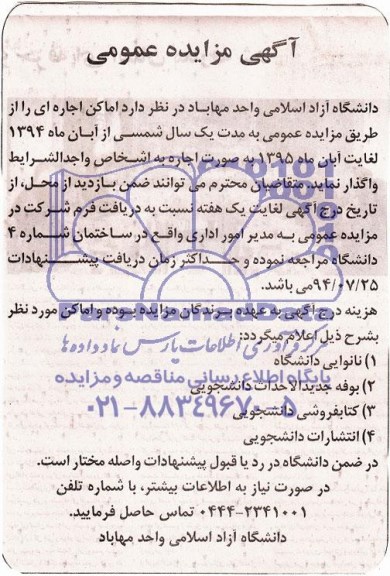 آگهی مزایده عمومی
دانشگاه آزاد اسلامی واحد مهاباد در نظر دارد اماکن اجاره ای را از
طریق مزایده عمومی به مدت یک سال شمسی از آبان ماه ۱۳۹۴
لغایت آبان ماه ۱۳۹۵ به صورت اجاره به اشخاص واجدالشرایط
واگذار نماید. متقاضیان محترم می توانند ضمن بازدید از محل، از
تاریخ درج آگهی لغایت یک هفته نسبت به دریافت فرم شرکت در
مزایده عمومی به مدیر امور اداری واقع در ساختمان شماره ۴
دانشگاه مراجعه نموده و حداکثر زمان دریافت پیشنهادات
۹۴/۰۷/۲۵می باشد.
هزینه درج آگهی به عهده برندگان مزایده بوده و اماکن مورد نظر
بشرح ذیل اعلام میگردد:
۱) نانوایی دانشگاه
۲) بوفه جدیدالاحداث دانشجویی
۳) کتابفروشی دانشجویی
۴) انتشارات دانشجویی
در ضمن دانشگاه در رد یا قبول پیشنهادات واصله مختار است.
در صورت نیاز به اطلاعات بیشتر، با شماره تلفن
۰۴۴۴-۲۳۴۱۰۰۱ تماس حاصل فرمایید.
دانشگاه آزاد اسلامی واحد مهاباد
ParsNamadData
فن آوری اطلاعات پارس نماد داده ها
پایگاه اطلاع رسانی مناقصه و مزایده
۰۲۱-۸۸۳۴۹۶۷۰-۵